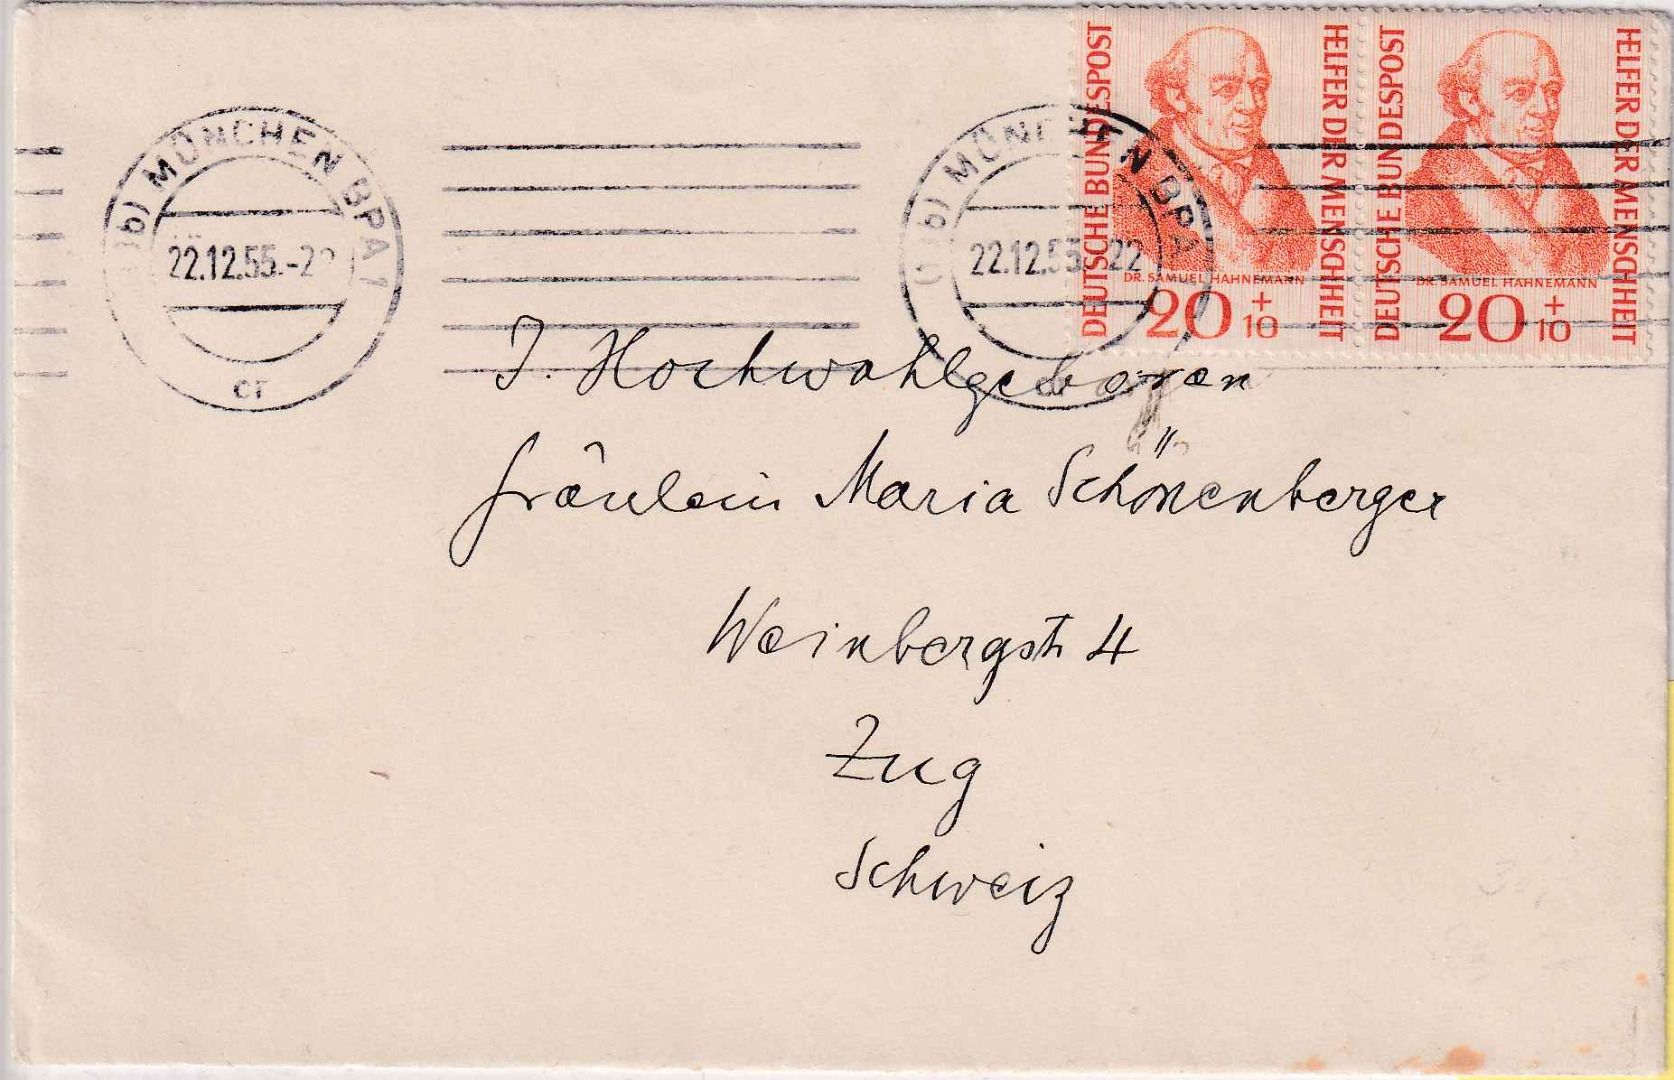 DEUTSCHE BUNDESPOST
HELFER DER MENSCHHEIT
DR. SAMUEL HAHNEMANN
20 + 10
DEUTSCHE BUNDESPOST
HELFER DER MENSCHHEIT
DR. SAMUEL HAHNEMANN
20 + 10
b) MÜNCHEN BPA 1
22.12.55.-2
cr
b) MÜNCHEN BPA
22.12.55 22
J. Hochwohlgeboren
Fräulein Maria Schönenberger
Weinbergstr 4
Zug
Schweiz